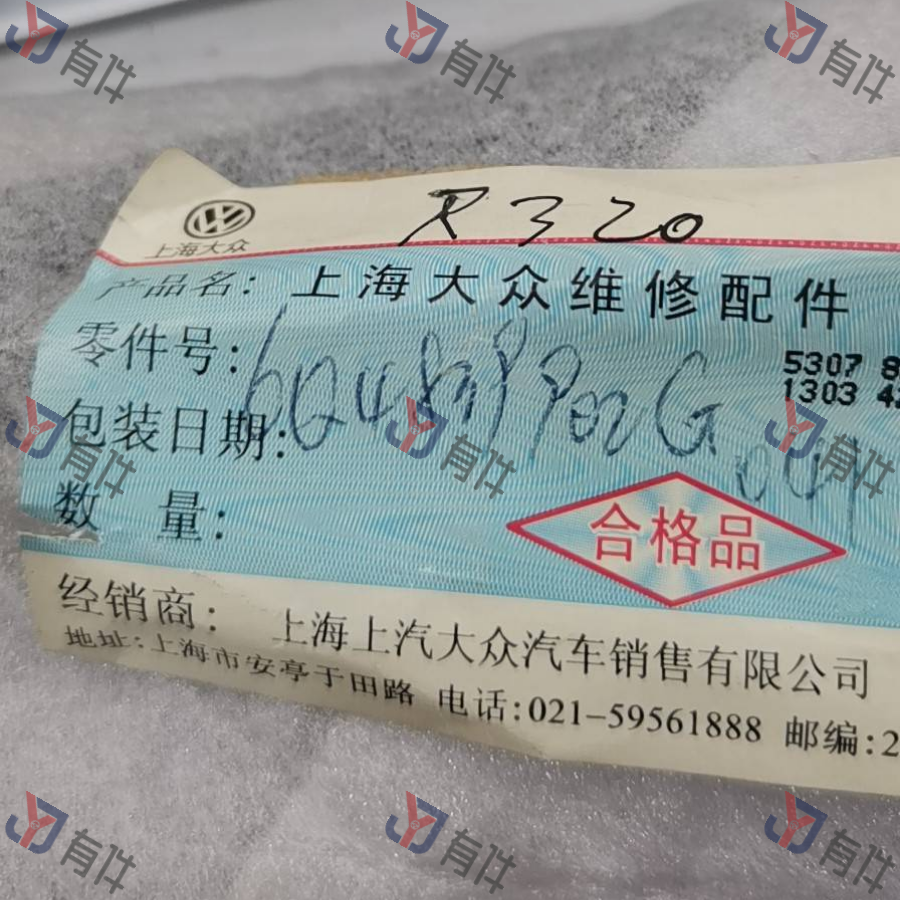 R320
上海大众
产品名：上海大众维修配件
零件号：6Q4 G
5307 8
1303 42
包装日期：
数 量：
合格品
经销商：上海上汽大众汽车销售有限公司
地址：上海市安亭于田路 电话：021-59561888 邮编：2
有件
有件
有件
有件
有件
有件
有件
有件
有件